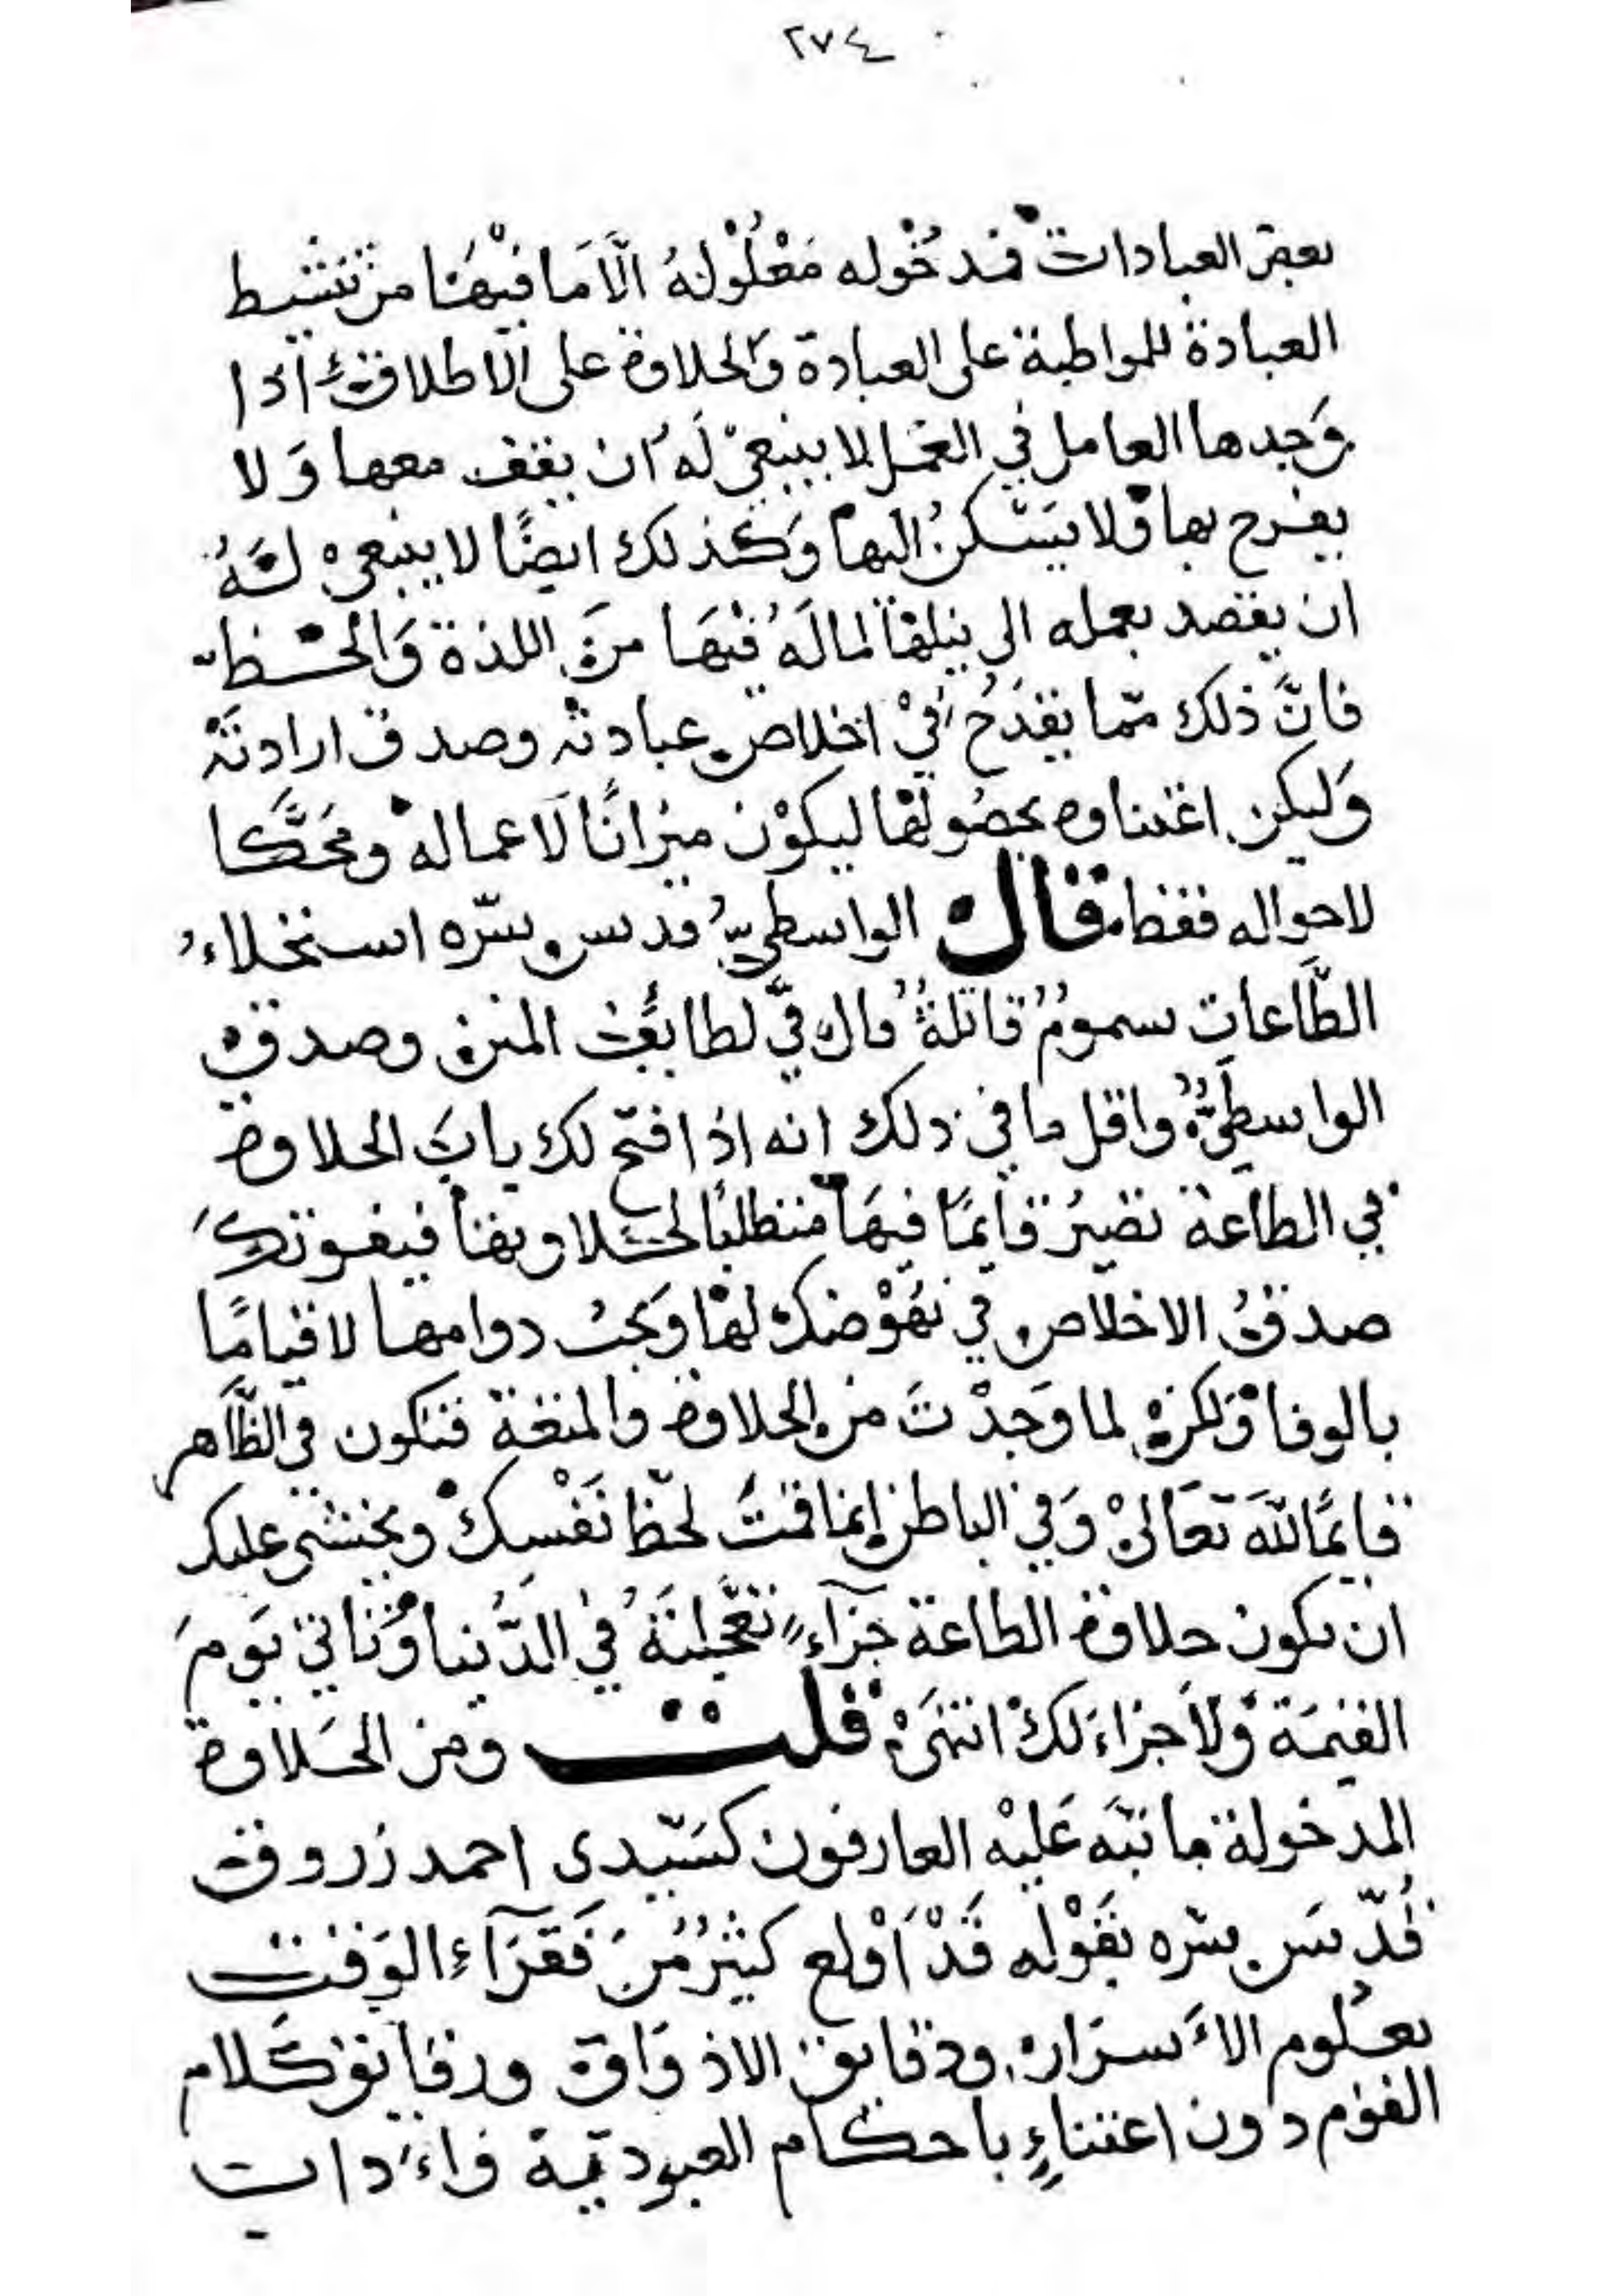 ٢٧٤
بعض العبادات فمدخوله معلولة الّا ما فيها من تنشيط
العبادة للمواظبة على العبادة والحلاوة على الاطلاق اذا
وجدها العامل في العمل لا ينبغي له ان يقف معها ولا
يفرح بها ولا يسكن اليها وكذلك ايضًا لا ينبغي له
ان يقصد بعمله الى نيلها لما له فيها من اللذة والحظ
فانّ ذلك ممّا يقدح في اخلاص عبادته وصدق ارادته
وليكن اغتناوه بحصولها ليكون ميزانًا لاعماله ومحكّا
لاحواله فقط قال الواسطيّ قدس سّره استحلاء
الطّاعات سمومٌ قاتلةٌ قال في لطايف المنن وصدق
الواسطيّ واقل ما في ذلك انه اذا فتح لك باب الحلاوة
في الطاعة تصير قايمًا فيها متطلبًا لحلاوتها فيفوتك
صدق الاخلاص في نهوضك لها وتحب دوامها لا قيامًا
بالوفا ولكن لما وجدت من الحلاوة والمتعة فتكون في الظّاهر
قايمًا للّه تعالى وفي الباطن إنما قمت لحظ نفسك ويخشى عليك
ان تكون حلاوة الطاعة جزآءً تعجلته في الدّنيا وتاتي يوم
القيمة ولا جزاء لك انتهى قلت ومن الحلاوة
المدخولة ما نبّه عليه العارفون كسيّدى احمد زروق
قدّس سّره بقوله قد اولع كثيرٌ من فقرآء الوقت
بعلوم الاسرار ودقايق الاذواق ورقايق كلام
القوم دون اعتناءٍ باحكام العبوديّة واءداب